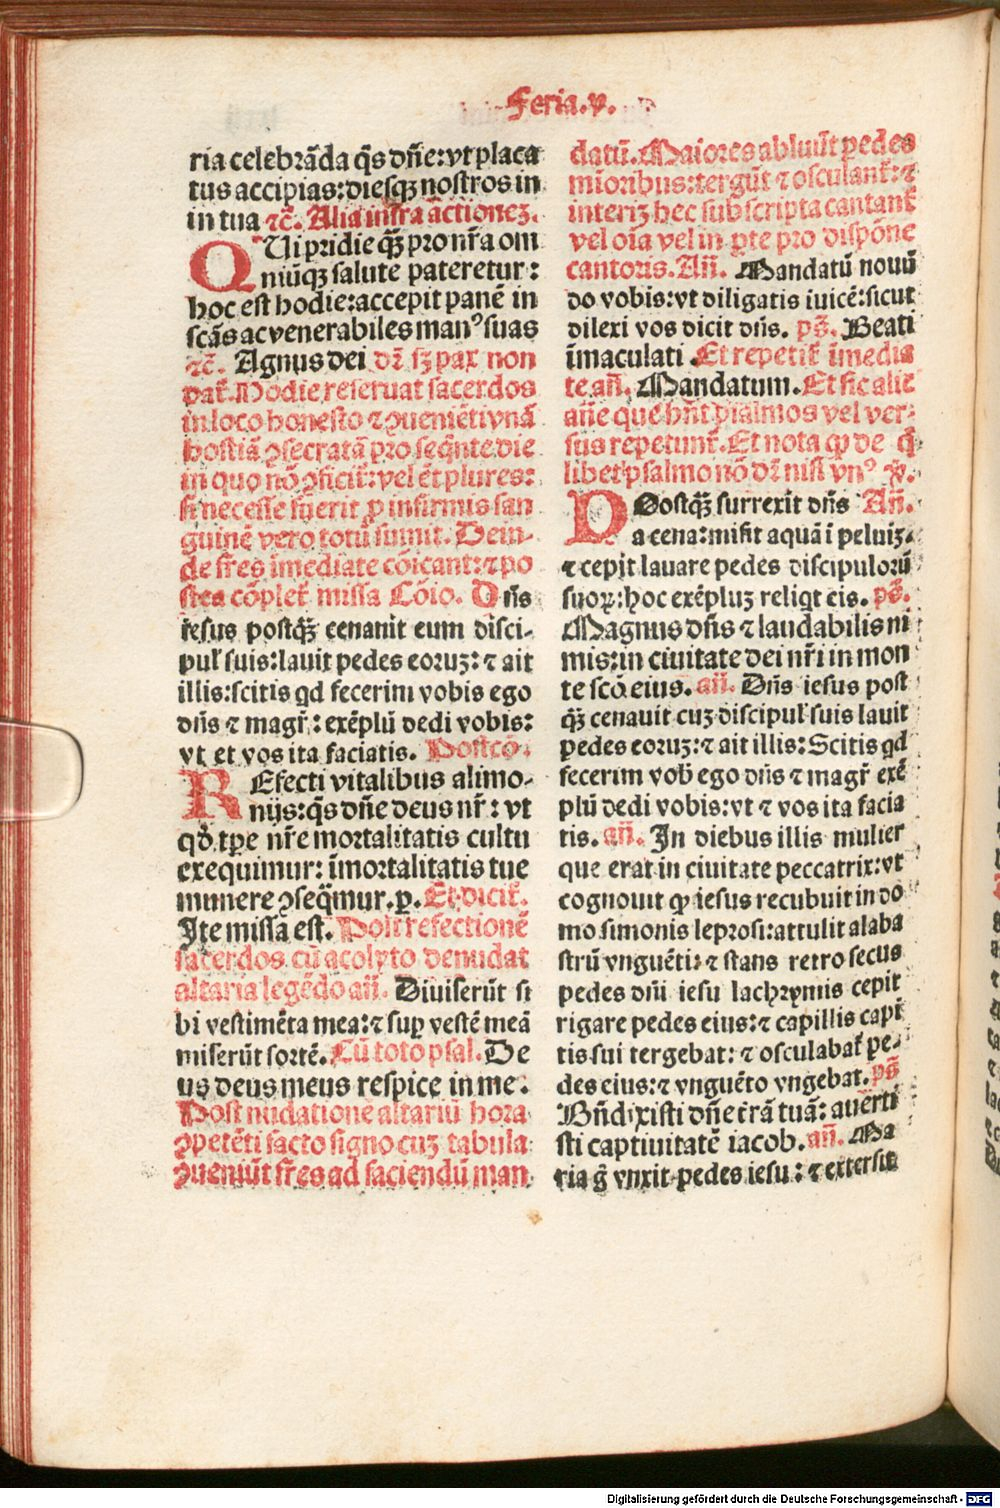 Feria.v.
ria celebrāda q̄s dn̄e:vt placa
tus accipias:diesqꝫ nostros in
in tua ⁊c̄. Alia infra actionez.
QVi pridie qꝫ̄ pro nr̄a om
niūqꝫ salute pateretur:
hoc est hodie:accepit panē in
scās ac venerabiles manꝰ suas
⁊c̄. Agnus dei dr̄ sꝫ pax non
dat̄.Hodie reseruat sacerdos
in loco honesto ⁊ ꝯueniēti vnā
hostiā ꝯsecratā pro seqn̄te die
in quo nō ꝯficit̄:vel et plures:
si necesse fuerit ꝓ infirmis san
guinē vero totū sumit. Dein-
de fr̄es īmediate cōicant:⁊ po
stea cōplet̄ missa Cōio. Dn̄s
iesus postqꝫ̄ cenauit cum disci-
pul̓ suis:lauit pedes eoruꝫ:⁊ ait
illis:scitis qd fecerim vobis ego
dn̄s ⁊ magr̄:exēplū dedi vobis:
vt et vos ita faciatis. Postcō.
REfecti vitalibus alimo-
nijs:q̄s dn̄e deus nr̄: vt
qd̄ tꝑe nr̄e mortalitatis cultu
exequimur: īmortalitatis tue
munere ꝯseq̄mur.ꝑ. Et dicit̄.
Ite missa est. Post refectionē
sacerdos cū acolyto denudat
altaria legēdo an̄. Diuiserūt si
bi vestimēta mea:⁊ suꝑ vestē meā
miserūt sortē. Cū toto psal. De
us deus meus respice in me.
Post nudationē altariū hora
ꝯpetēti facto signo cuꝫ tabula
ꝯueniūt fr̄es ad faciendū man
datū. Maiores abluūt pedes
mīoribus:tergūt ⁊ osculant̄:⁊
interiꝫ hec subscripta cantant̄
vel oīa vel in ꝑte pro dispōne
cantoris. An̄. Mandatū nouū
do vobis:vt diligatis iuicē:sicut
dilexi vos dicit dn̄s. ps̄. Beati
īmaculati. Et repetit̄ īmedia
te an̄. Mandatum. Et sic alie
an̄e que hn̄t psalmos vel ver-
sus repetunt̄. Et nota ꝙ de q̄
libet psalmo nō dr̄ nisi vnꝰ ℣.
POostqꝫ̄ surrexit dn̄s An̄.
a cena:misit aquā ī peluiꝫ.
⁊ cepit lauare pedes discipulorū
suoꝝ:hoc exēpluꝫ reliqt eis. ps̄.
Magnus dn̄s ⁊ laudabilis ni
mis:in ciuitate dei nr̄i in mon
te scō eius. an̄. Dn̄s iesus post
qꝫ̄ cenauit cuꝫ discipul̓ suis lauit
pedes eoruꝫ:⁊ ait illis: Scitis qd
fecerim vob̓ ego dn̄s ⁊ magr̄ exē
plū dedi vobis:vt ⁊ vos ita facia
tis. an̄. In diebus illis mulier
que erat in ciuitate peccatrix:vt
cognouit ꝙ iesus recubuit in do
mo simonis leprosi:attulit alaba
strū vnguēti:⁊ stans retro secus
pedes dn̄i iesu lachrymis cepit
rigare pedes eius:⁊ capillis capi
tis sui tergebat: ⁊ osculabat̄ pe-
des eius:⁊ vnguēto vngebat. ps̄
Bn̄dixisti dn̄e t̄rā tuā: auerti
sti captiuitatē iacob. an̄. Ma
ria g̊ vnxit pedes iesu: ⁊ extersit
Digitalisierung gefördert durch die Deutsche Forschungsgemeinschaft - DFG